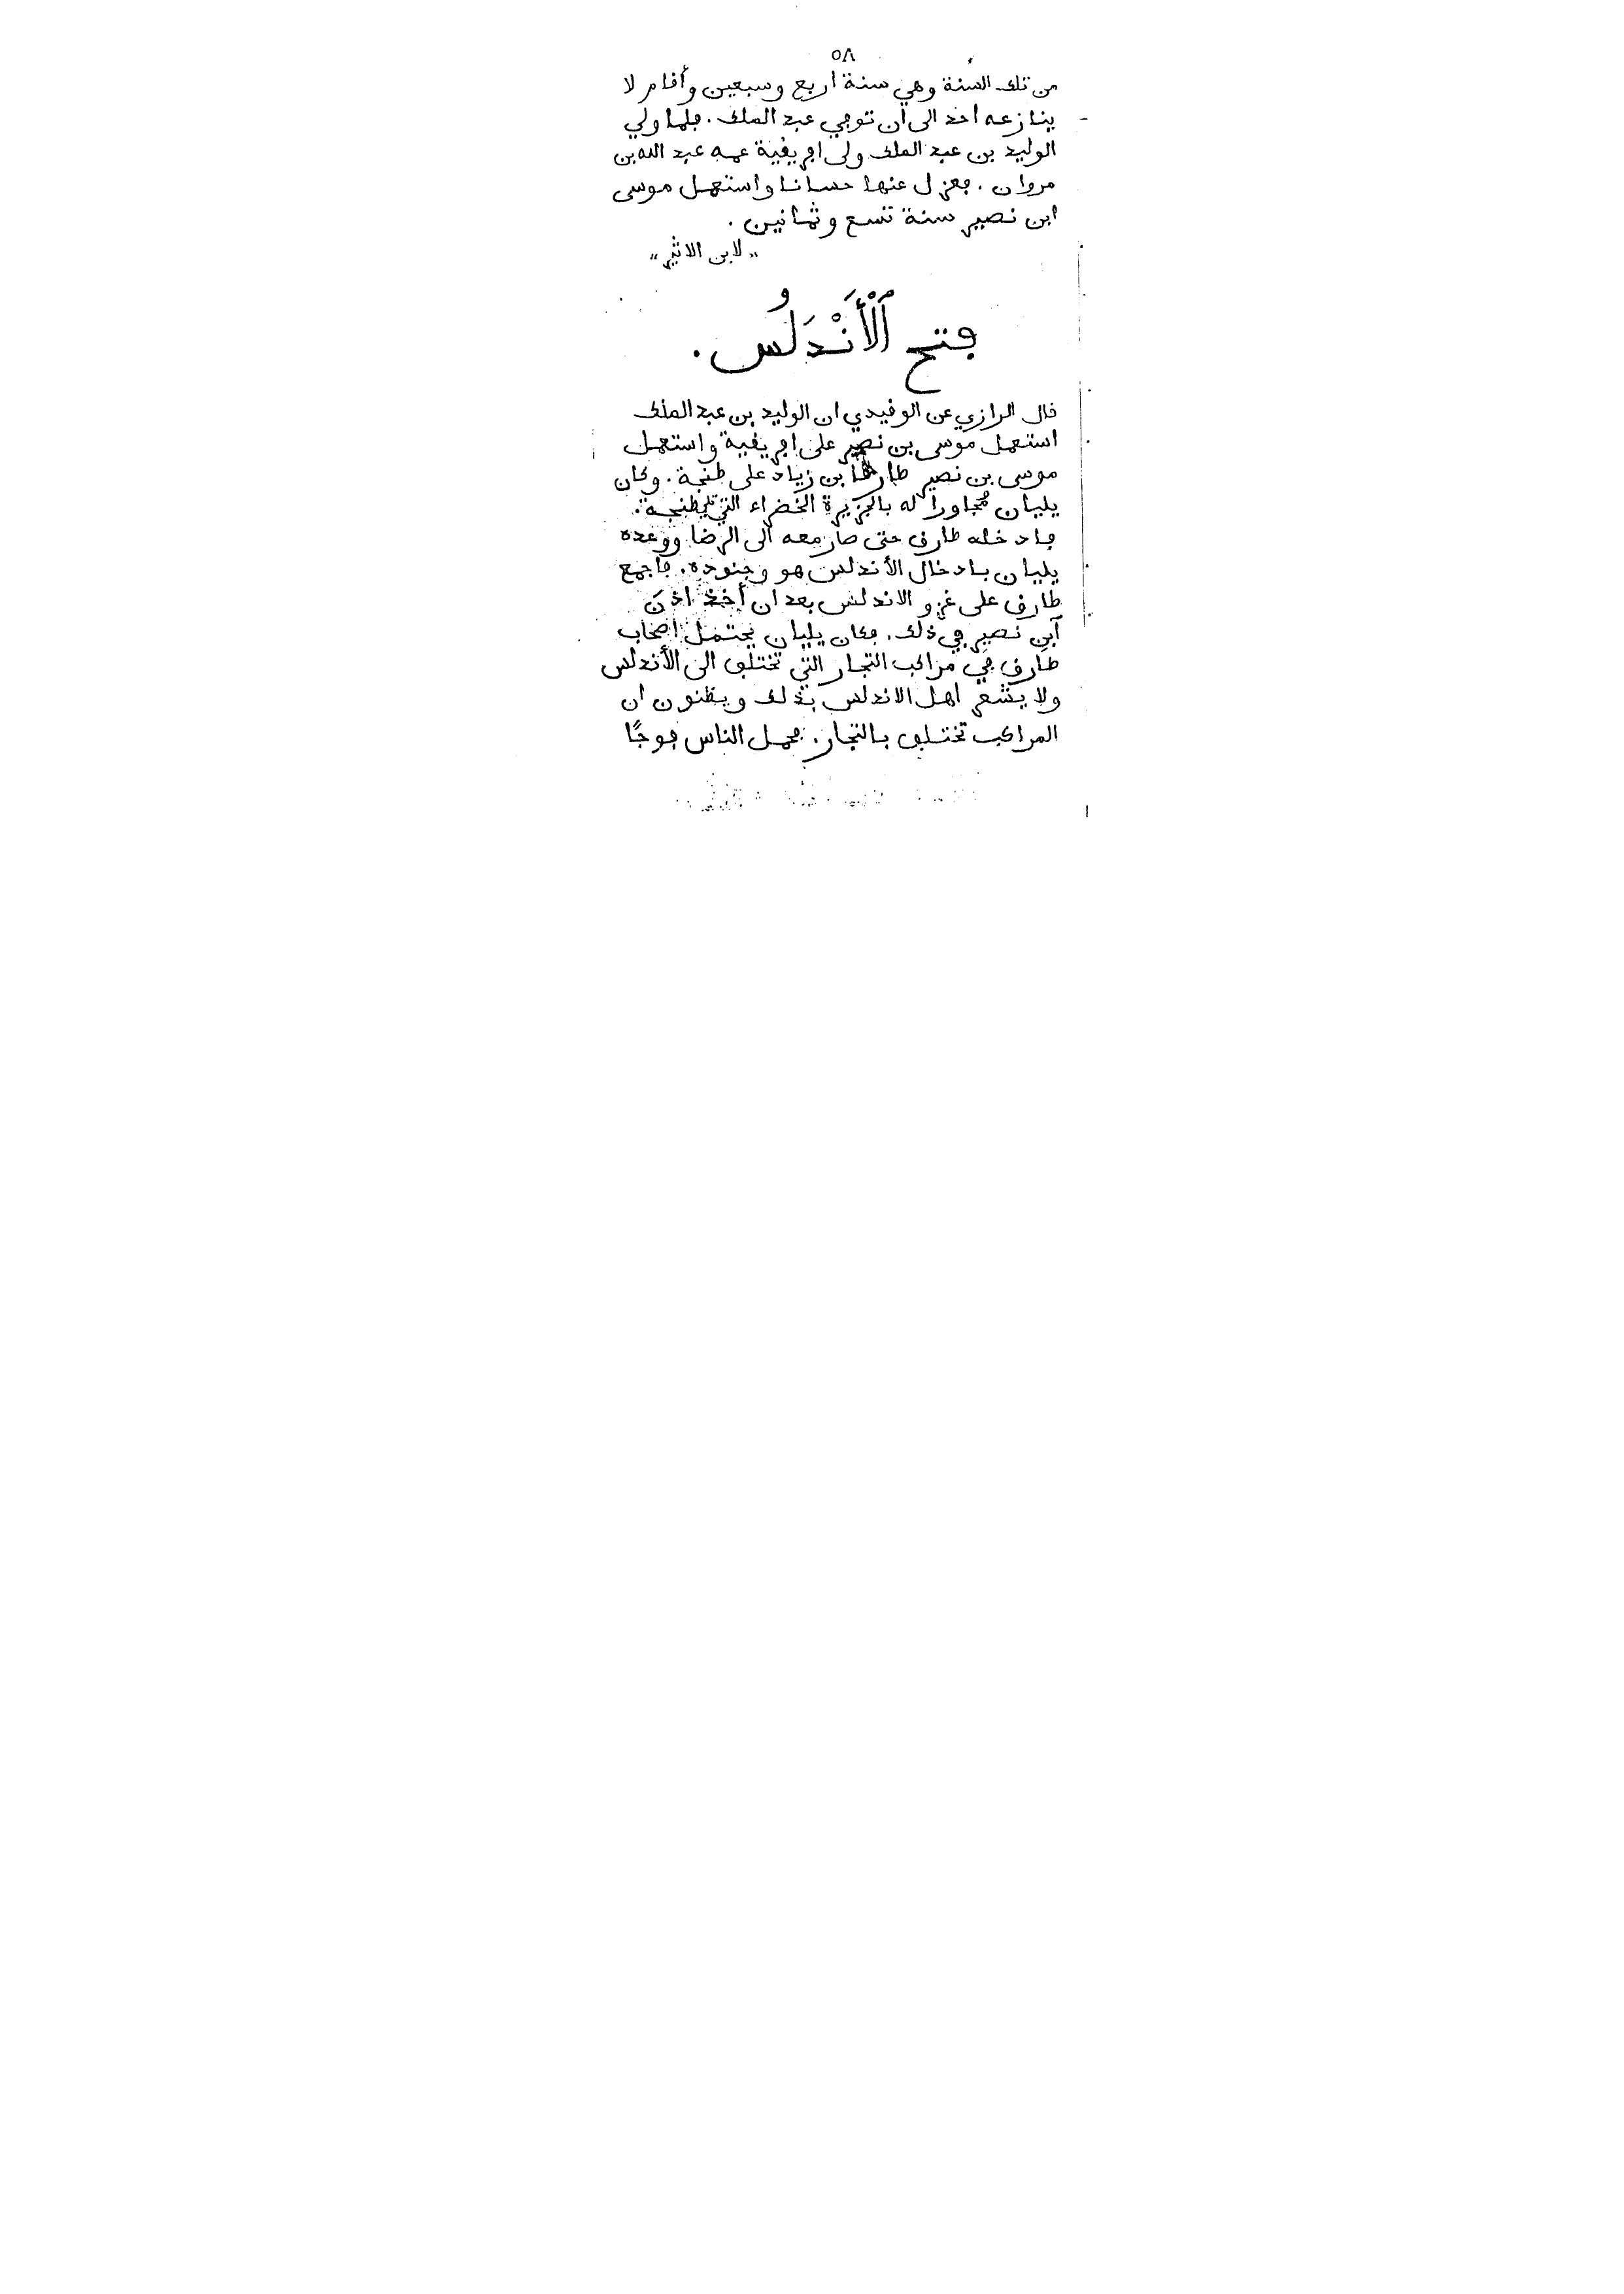 ٥٨
من تلك السنة وهي سنة اربع وسبعين وأقام لا
ينازعه احد الى ان توفي عبد الملك . فلما ولي
الوليد بن عبد الملك ولى افريقية عمه عبد الله بن
مروان . فعزل عنها حسانا واستعمل موسى
ابن نصير سنة تسع وثمانين .
„ لابن الاثير „
فتح ٱلْأَنْدَلُسِ .
قال الرازي عن الوقيدي ان الوليد بن عبد الملك
استعمل موسى بن نصير على افريقية واستعمل
موسى بن نصير طارقا بن زياد على طنجة . وكان
يليان مُجاورا له بالجزيرة الخضراء التي تلي طنجة .
فادخله طارق حتى صار معه الى الرضا ووعده
يليان بادخال الأندلس هو وجنوده . فاجمع
طارق على غزو الاندلس بعد ان أخذ اذنَ
ٱبن نصير في ذلك . فكان يليان يحتمل اصحاب
طارق في مراكب التجار التي تختلف الى الأندلس
ولا يشعر اهل الاندلس بذلك ويظنون ان
المراكب تختلف بالتجار . فحمل الناس فوجًا